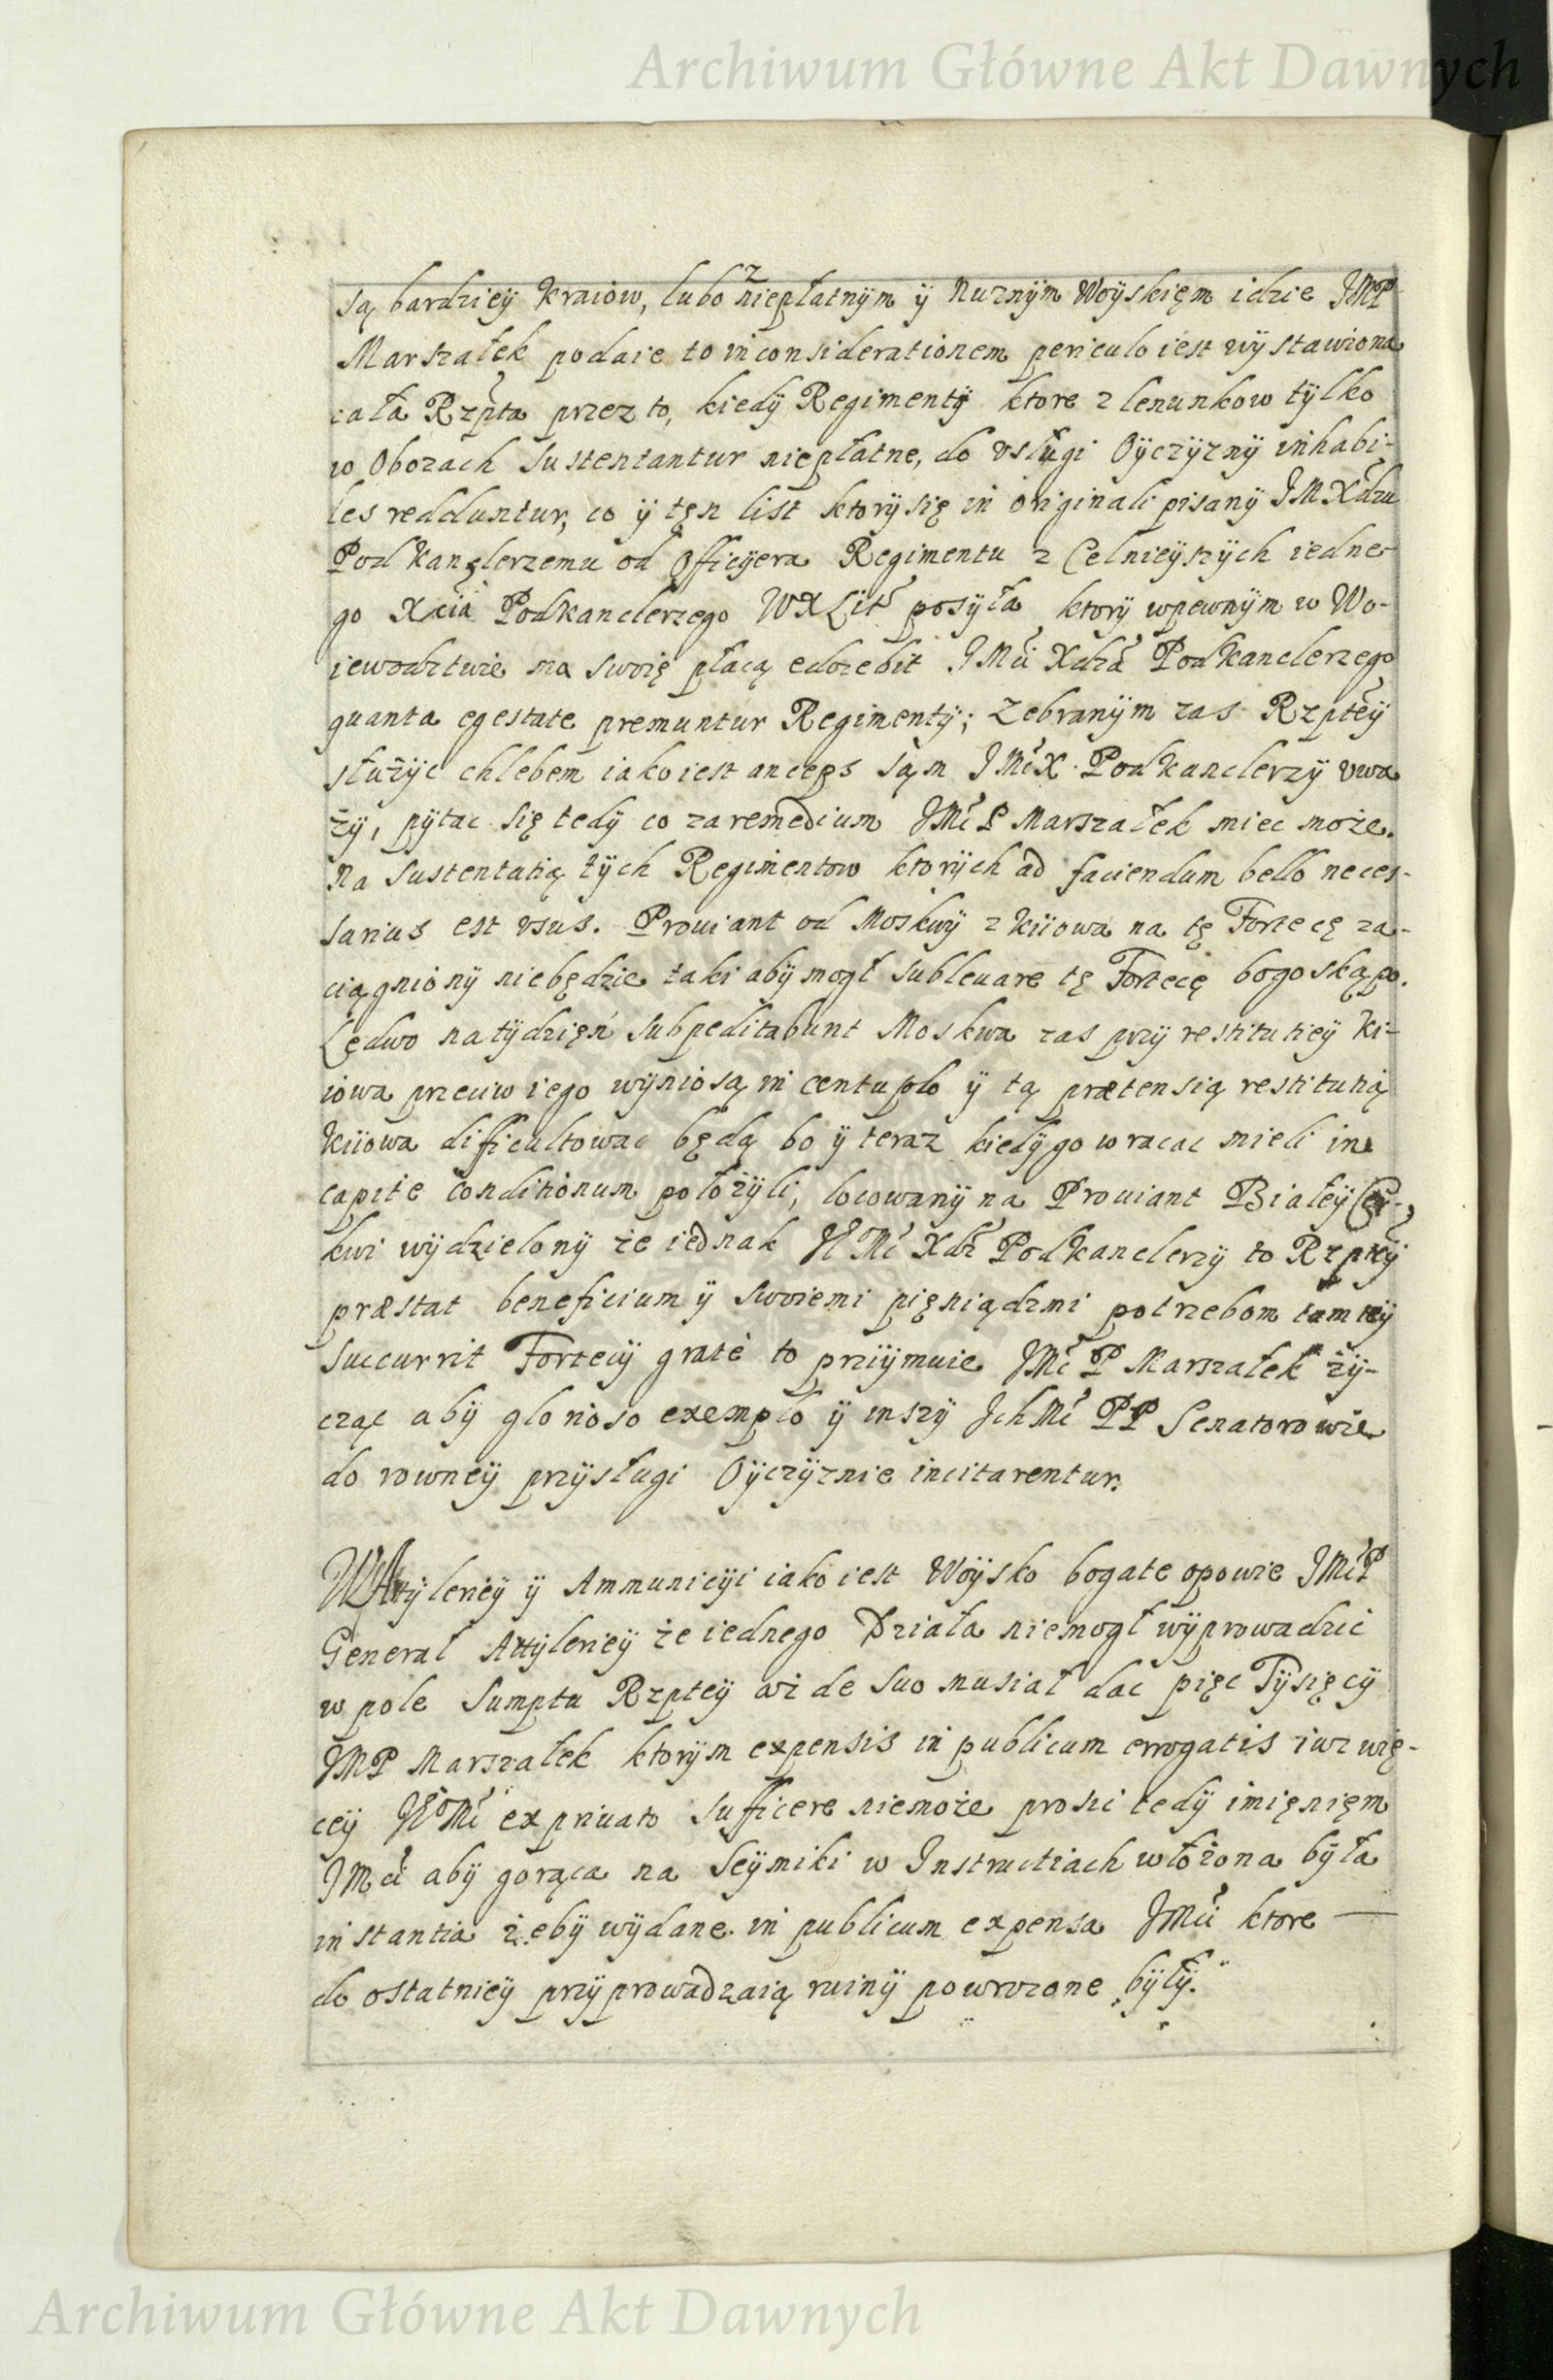 Archiwum Główne Akt Dawnych
są bardzieÿ Kraiow, lubo z niepłatnÿm ÿ Nuznÿm Woÿskięm idzie JMP
Marszałek podaie to in considerationem periculo iest wÿstawiona
cała Rzpta przez to, kiedÿ Regimentÿ ktore z lenunkow tÿlko
w Obozach sustentantur niepłatne, do vsługi Oÿczÿznÿ inhabi-
les redduntur, co ÿ tęn list ktorÿ się in originali pisanÿ JMXdzu
Podkanclerzemu od Officÿera Regimentu z Celnieÿszÿch iedne-
go Xcia Podkanclerzego WXLit posÿła, ktorÿ wpewnÿm w Wo-
iewodztwie na swoię płacą JMci Xdza Podkanclerzego
quanta egestate premuntur Regimentÿ; Zebranÿm zas Rzpteÿ
służÿc chlebem iako iest anceps sąm JMcX Podkanclerzÿ vwa
żÿ, pÿtac się tedÿ co za remedium JMc P Marszałek miec może.
Na sustentatią tÿch Regimentow ktorÿch ad faciendum bello neces-
sarius est vsus. Prouiant od Moskwÿ z Kiiowa na tę Fortecę za-
ciągnionÿ niebędzie taki abÿ mogł subleuare tę Fortecę bo go skąpo.
Lędwo na tÿdzięń subpeditabunt Moskwa zas przÿ restitutieÿ Ki-
iowa przeciw iego wÿniosą in centuplo ÿ tą prætensią restitutią
Kiiowa difficultowac będą bo ÿ teraz kiedÿ go wracac mieli in
capite conditionum położÿli, locowanÿ na Prouiant Białeÿ Cer-
kwi wÿdzielonÿ że iednak JE Mc Xdz Podkanclerzÿ to Rzpteÿ
præstat beneficium ÿ swoiemi pięniądzmi potrzebom tamteÿ
succurrit Fortecÿ gratè to prziÿmuie JMc P Marszałek żÿ-
cząc abÿ glorioso exemplo ÿ inszÿ JchMc PP Senatorowie
do rowneÿ przÿsługi Oÿczÿznie incitarentur.
W Artÿlerieÿ ÿ Ammunicÿi iako iest Woÿsko bogate opowie JMcP
Generał Artÿlerieÿ że iednego Działa niemogł wÿprowadzic
w pole sumptu Rzpteÿ aż de suo musiał dac pięc Tÿsięcÿ
JMP Marszałek ktorÿm expensis in publicum errogatis iuz wię-
ceÿ JE Mc ex priuato sufficere niemoże prosi tedÿ imięnięm
JMci abÿ gorąca na Seÿmiki w Instructiach włożona bÿła
instantia żebÿ wÿdane in publicum expensa JMci ktore —
do ostatnieÿ przÿprowadzaią ruinÿ powrozone bÿłÿ.
Archiwum Główne Akt Dawnych